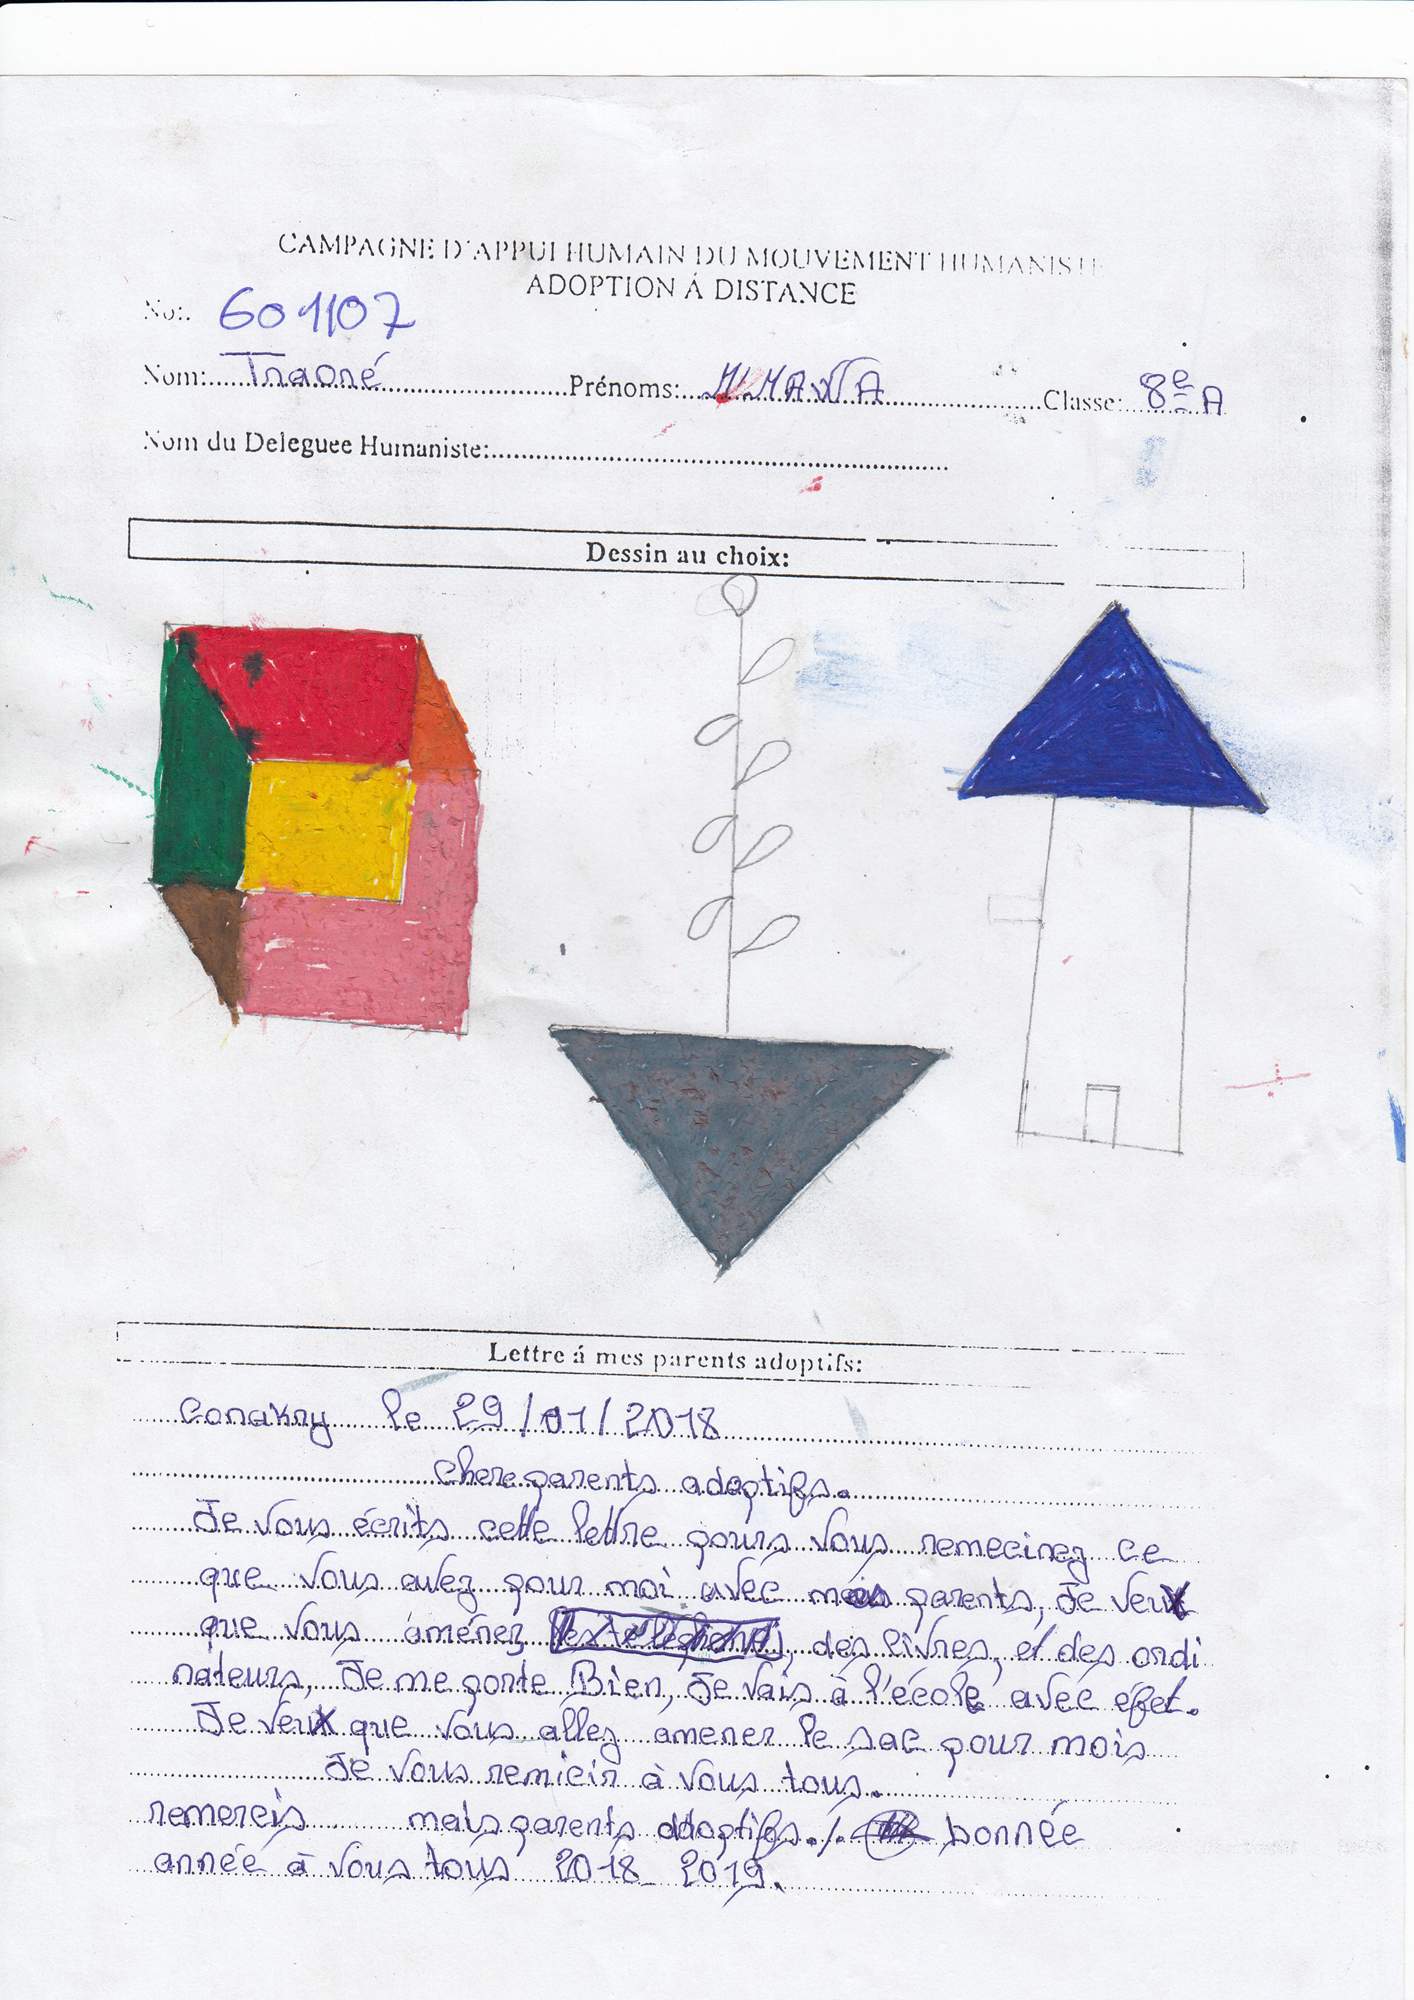 CAMPAGNE D'APPUI HUMAIN DU MOUVEMENT HUMANISTE
ADOPTION Á DISTANCE
No:. 601107
Nom: Traoré Prénoms: Classe: 8e A
Nom du Deleguee Humaniste:
Dessin au choix:
Lettre á mes parents adoptifs:
Conakry le 29/01/2018
chere parents adoptifs.
Je vous écrits cette lettre pours vous remecirez ce
que vous avez pour moi avéc parents, Je veux
que vous aménez , des livres, et des ordi
nateurs, Je me porte Bien, Je vais à l'école avec efet.
Je veux que vous allez amener le sac pour mois
Je vous remicir à vous tous.
remercis mais parents adoptifs./. bonnée
année à vous tous 2018_ 2019.